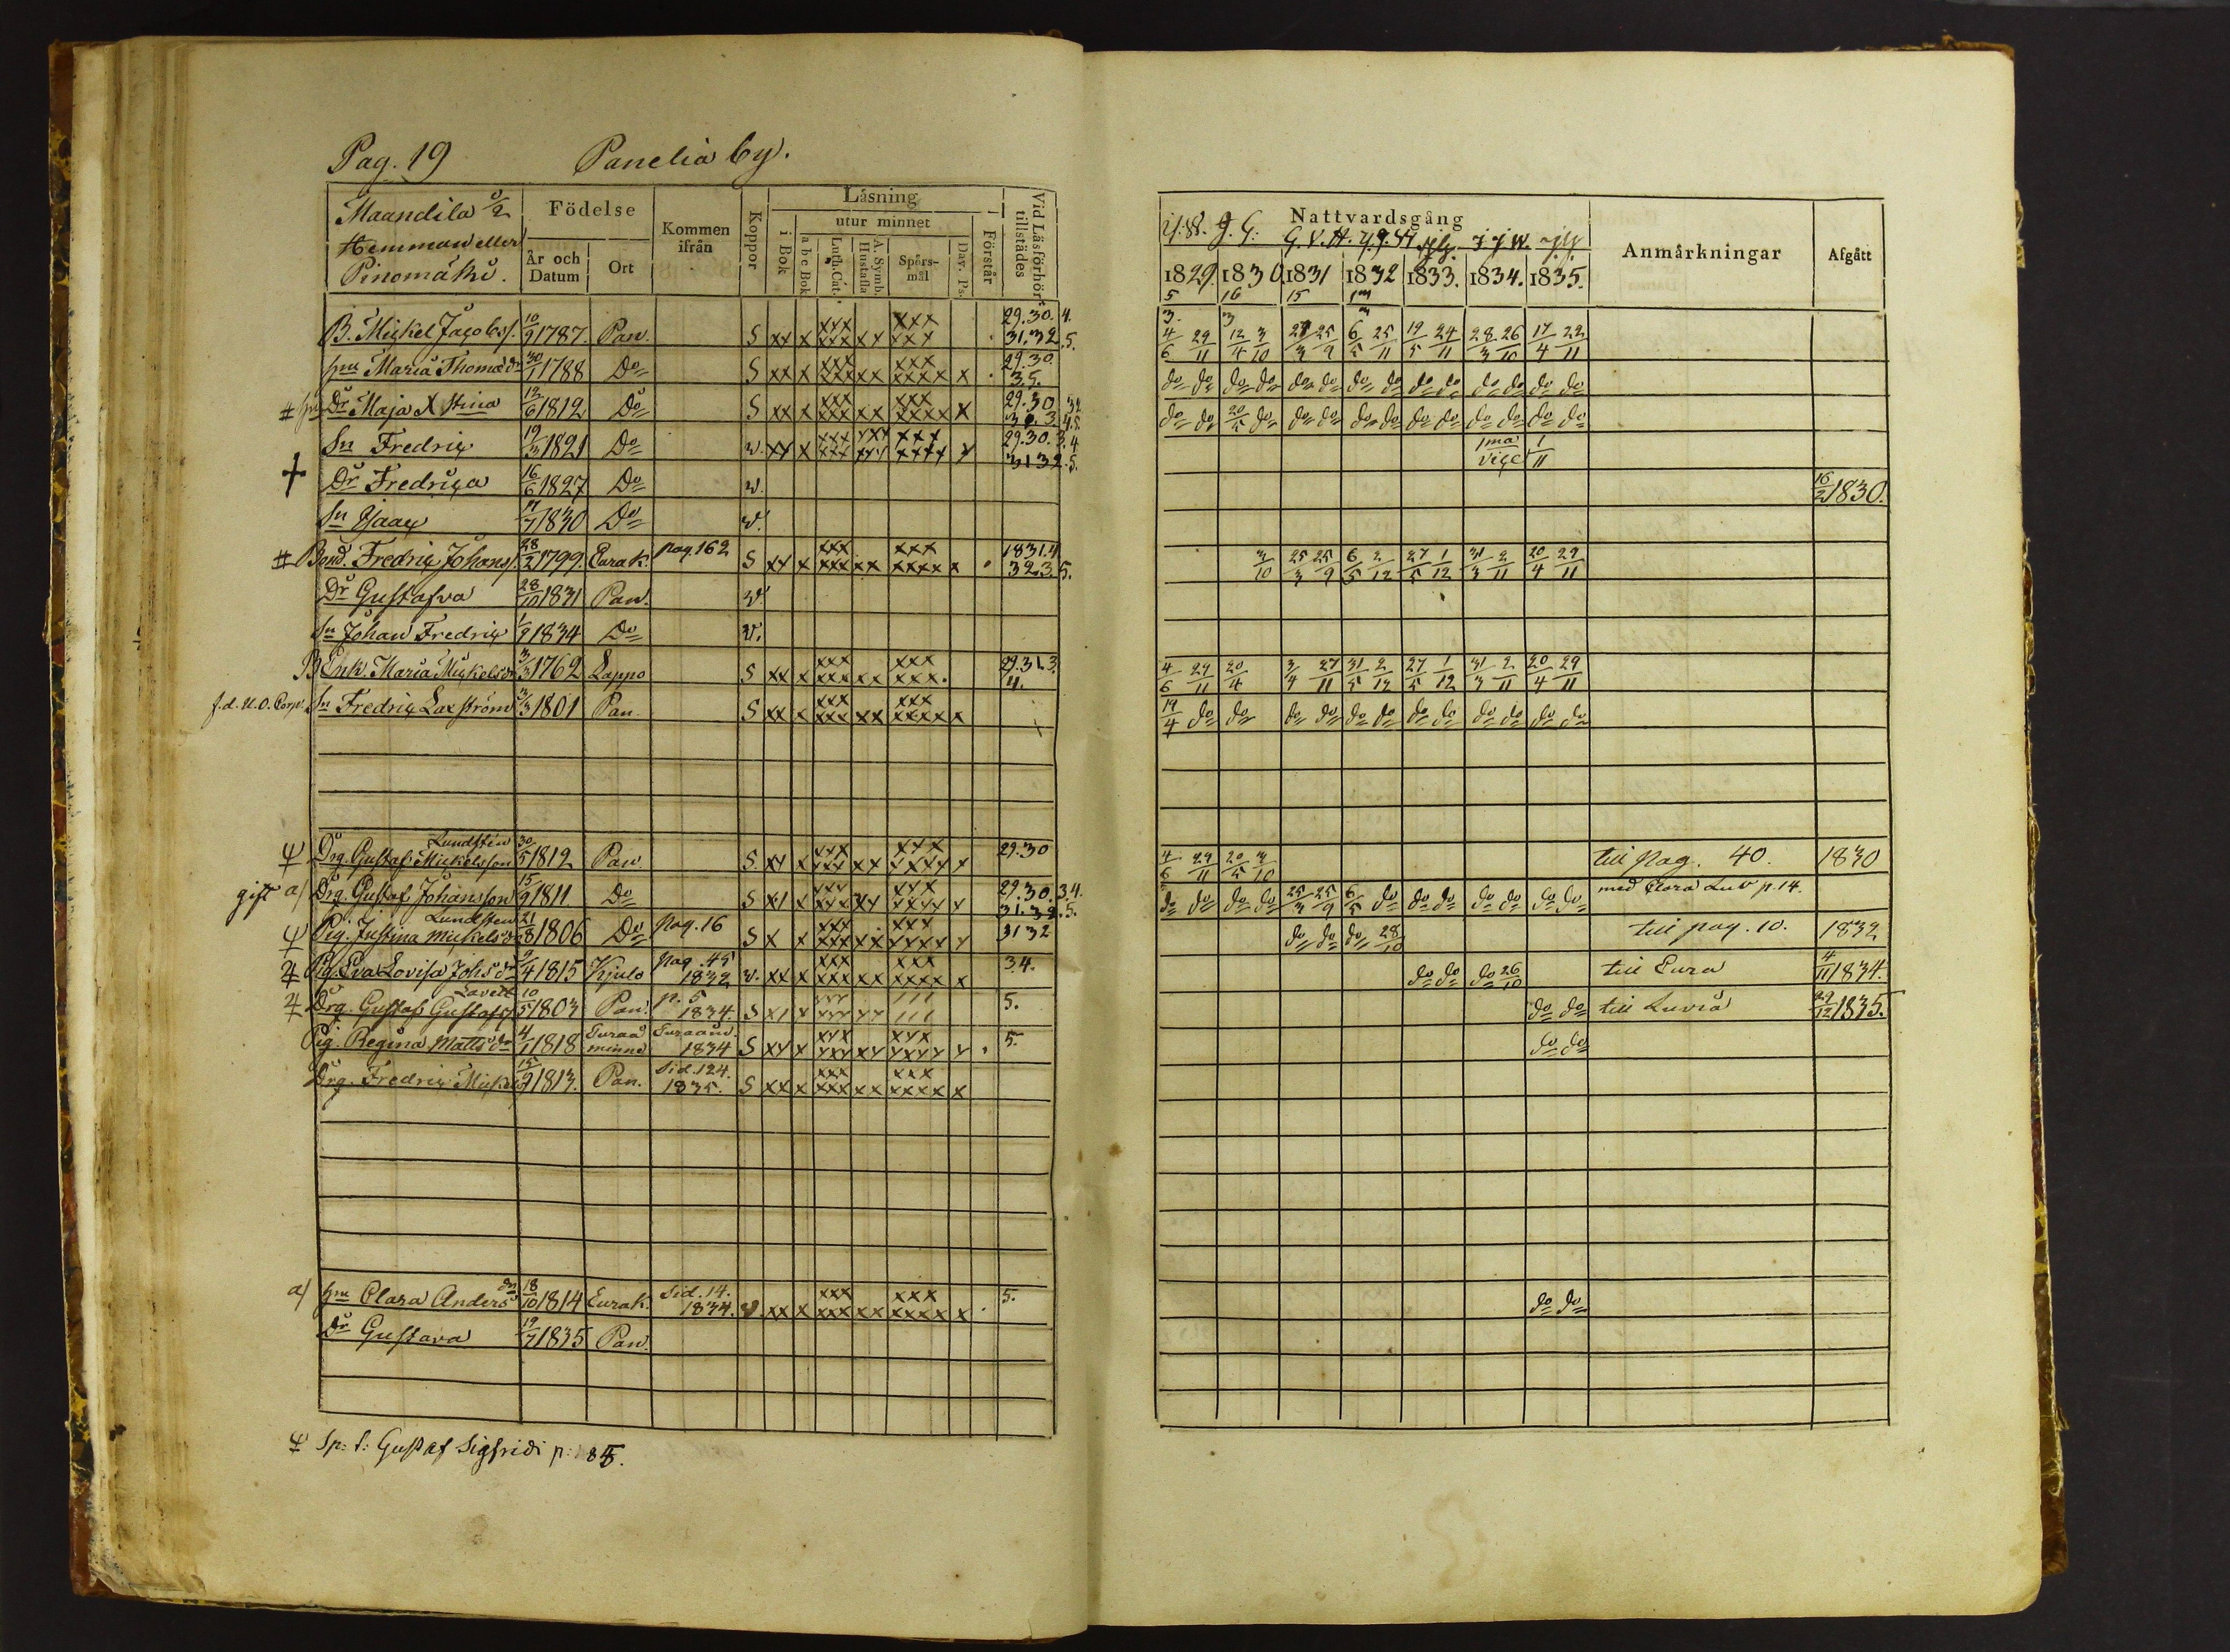 Pag. 19 Panelia by.
Maandila
Hemman eller
Pinomäki.
Födelse
År och Datum
Ort
Kommen ifrån
Koppor
Läsning
i Bok
utur minnet
a b c Bok
Luth. Cat.
A. Symb. Hustafla
Spörs-mål
Dav. Ps.
Förstår
Vid Läsförhör tillstädes
Nattvardsgång
1829. 1830. 1831 1832 1833. 1834. 1835.
5 16 15
Anmärkningar
Afgått
B. Mickel Jacobss. 10/9 1787. Pan. S xx x xxx xxx xx xxx xxx 29.30. 4. 31.32. 5. 4/6 29/11 12/4 3/10 27/3 25/9 6/5 25/11 19/5 24/11 28/3 26/10 17/4 22/11
hu Maria Thomædr 30/1 1788 Do S xx x xxx xxx xx xxx xxxx x 29.30. 35. do do do do do do do do do do do do do do
Dr Maja Stina 12/6 1812 Do S xx x xxx xxx xx xxx xxxx x 29.30 do do 20/5 do do do do do do do do do do do
Sn Fredric 19/3 1821 Do w. xx x xxx xxx xxx xxx xxx xxxx x 29.30. 3.4 3132. 5. 1ma vice 1/11
+ Dr Fredrica 16/6 1827 Do w. 16/2 1830.
Sn Isaac 17/7 1830 Do w.
# Bond. Fredric Johanss. 28/2 1799. Eurak. pag. 162 S xx x xxx xxx xx xxx xxxx x 1831.4 32.3. 5. 3/10 25/3 25/9 6/5 2/12 27/5 1/12 31/3 2/11 20/4 29/11
Dr Gustafva 28/10 1831 Pan. w.
Sn Johan Fredric 1/9 1834 Do w.
B Enk. Maria Mickelsdr 3/3 1762 Lappo S xx x xxx xxx xx xxx xxx. 29.31.3. 4. 4/6 29/11 20/4 3/4 27/11 31/5 2/12 27/5 1/12 31/3 2/11 20/4 29/11
f.d. U.O. Corp. Sn Fredric Laxström 3/3 1801 Pan. S xx x xxx xxx xx xxx xxxx x 19/4 do do do do do do do do do do do do
Lundsten
Drg. Gustaf Mickelsson 30/5 1812 Pan. S. xx x xxx xxx xx xxx xxxx x 29.30 4/6 29/11 20/5 3/10 till pag. 40. 1830
gift a) Drg. Gustaf Johansson 15/9 1811 Do S xx x xxx xxx xx xxx xxxx x 29.30. 3.4. 31.32. 5. do do do do 25/3 25/9 6/5 do do do do do do do med Clara Luv p. 14.
Lundsten
Pig. Justina Mickelsdr 21/8 1806 Do pag. 16 S x x xxx xxx xx xxx xxxx x 31 32 do do do 28/10 till pag. 10. 1832
Pig. Eva Lovisa Johsdr 9/4 1815 Kjulo pag. 45 1832 w. xx x xxx xxx xx xxx xxxx x 3.4. do do do 26/10 till Eura 4/11 1834.
Lavell
Drg. Gustaf Gustafs 10/5 1803 Pan. p. 5 1834. S x x 5. do do till Luvia 29/12 1835.
Pig. Regina Mattsdr 4/1 1818 Euraå minne Euraåm. 1834 S xx x xxx xxx xx xxx xxxx x 5. do do
Drg. Fredric Mickels 15/9 1813. Pan. Sid. 124. 1835. S xx x xxx xxx xx xxx xxxx x
a) hu Clara Andersdr 18/10 1814 Eurak. Sid. 14. 1834. w xx x xxx xxx xx xxx xxxx x 5. do do
Dr Gustava 19/7 1835 Pan.
Sp: f: Gustaf Sigfridi p: 85.